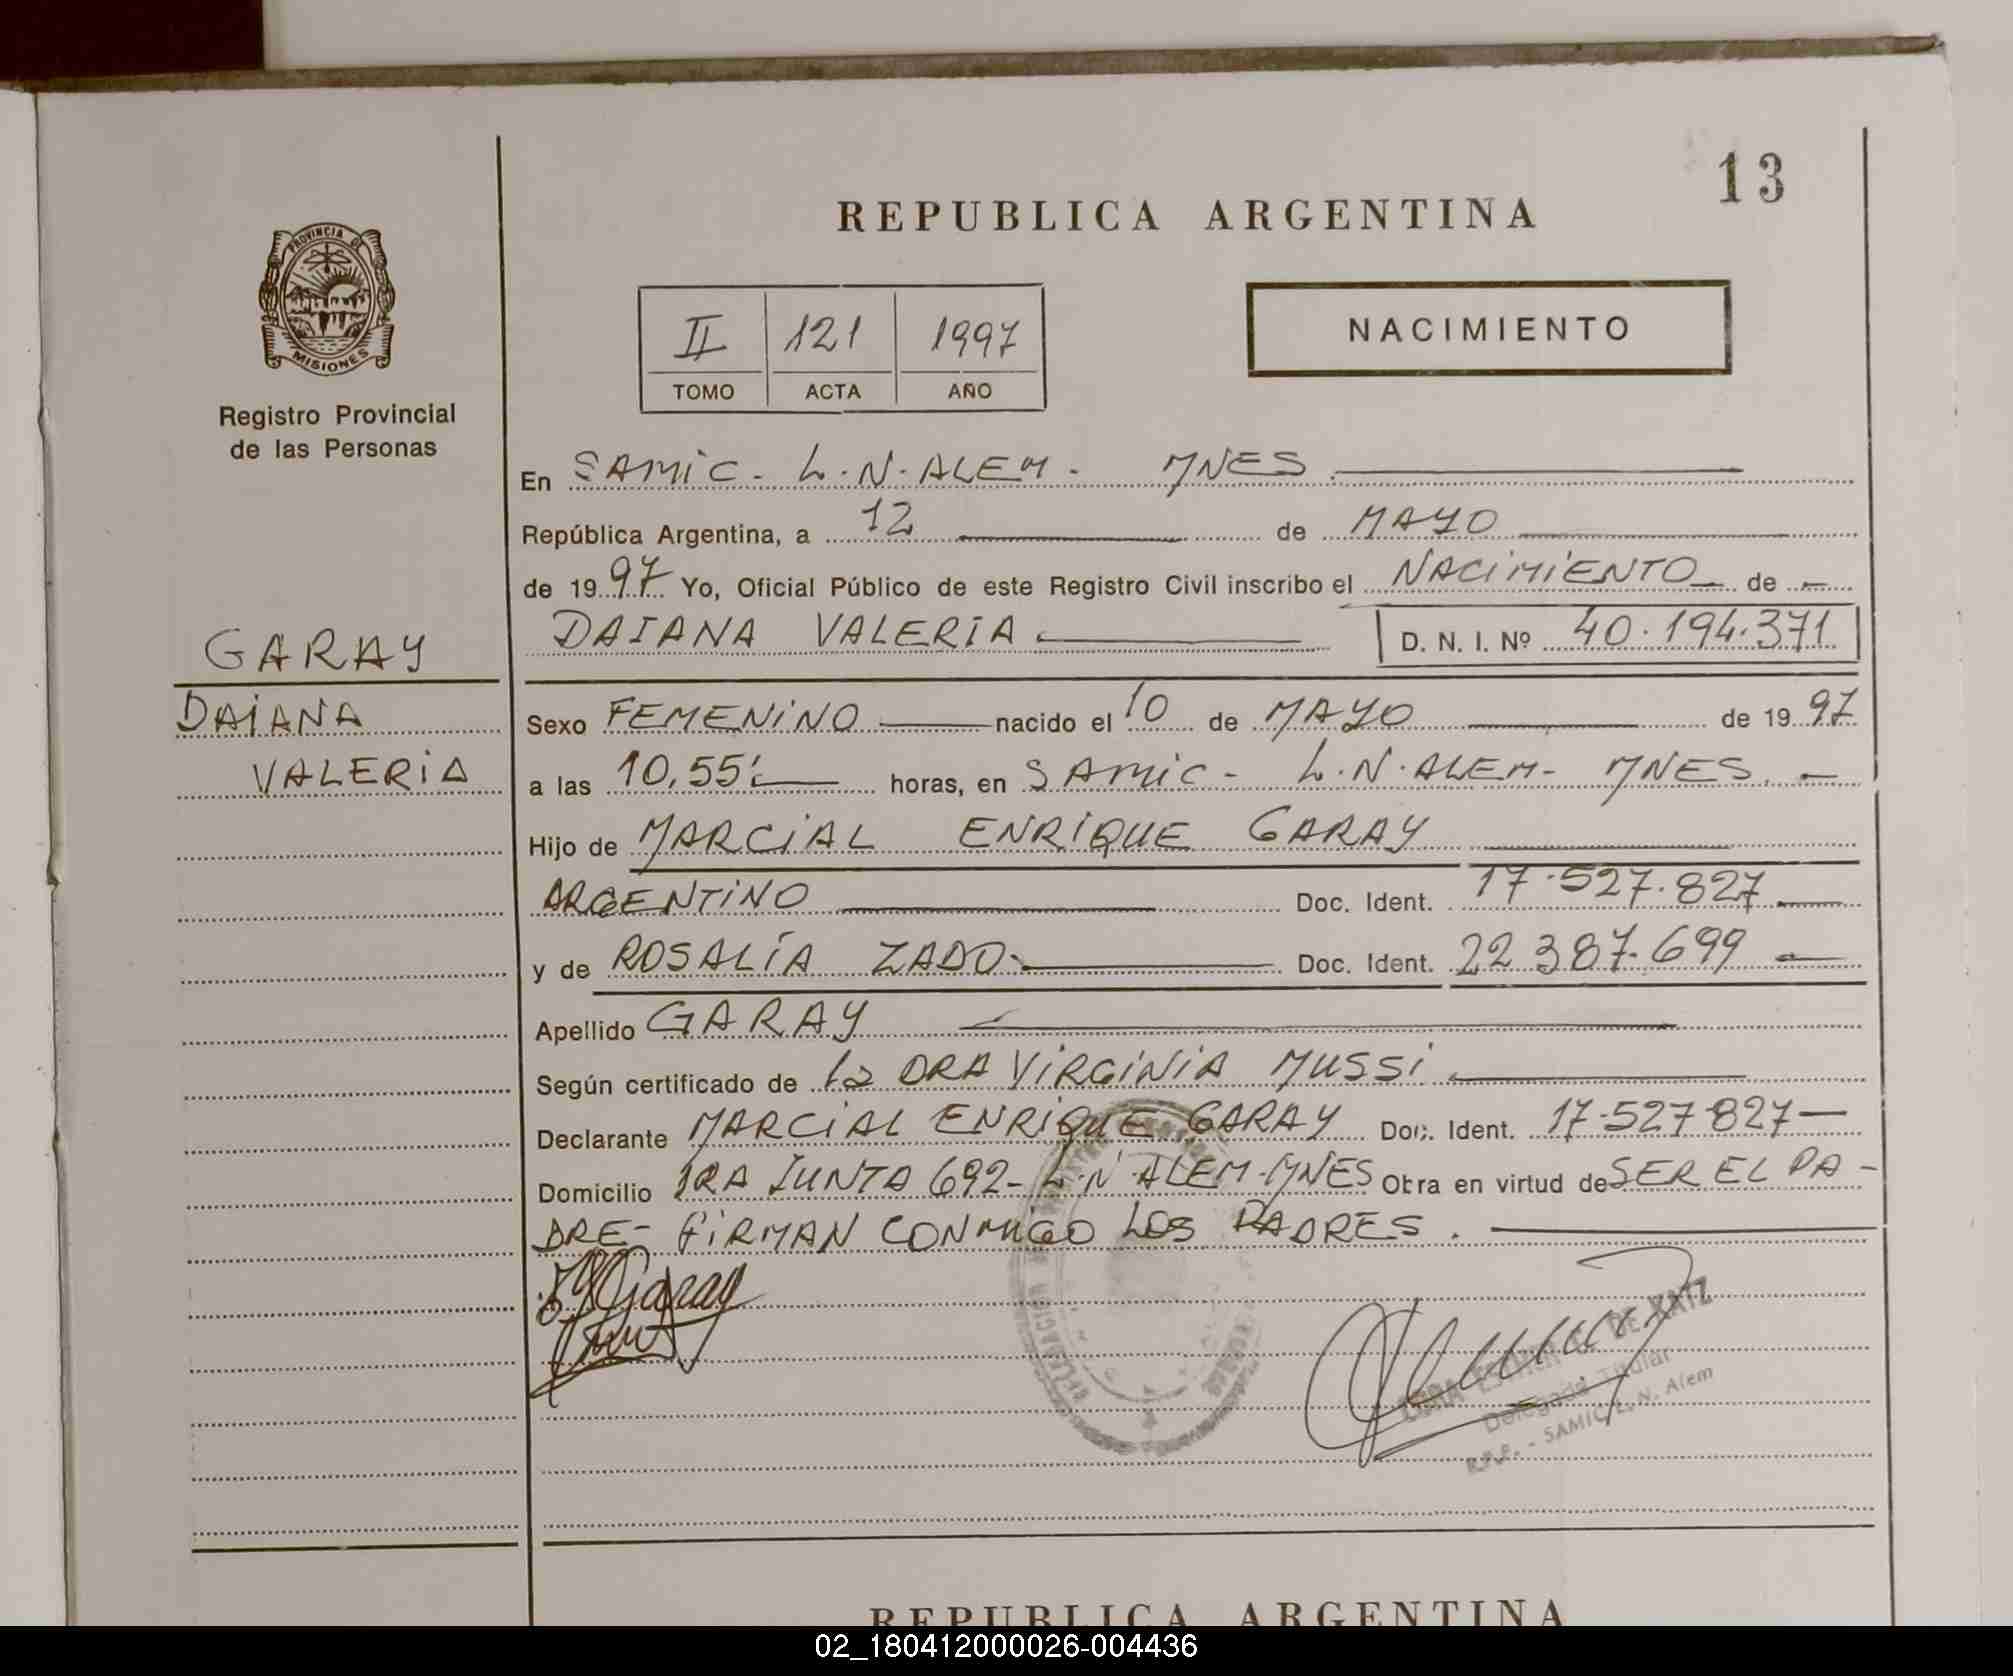 13
REPUBLICA ARGENTINA
PROVINCIA DE
MISIONES
Registro Provincial
de las Personas
NACIMIENTO
II 121 1997
TOMO ACTA AÑO
En SAMIC - L.N. ALEM - MNES
República Argentina, a 12 de MAYO
de 1997 Yo, Oficial Público de este Registro Civil inscribo el NACIMIENTO de
DAIANA VALERIA D. N. I. Nº 40.194.371
GARAY
DAIANA
VALERIA
Sexo FEMENINO nacido el 10 de MAYO de 1997
a las 10,55 horas, en SAMIC - L.N. ALEM - MNES
Hijo de MARCIAL ENRIQUE GARAY
ARGENTINO Doc. Ident. 17.527.827
y de ROSALÍA ZADO Doc. Ident. 22.387.699
Apellido GARAY
Según certificado de la DRA VIRGINIA MUSSI
Declarante MARCIAL ENRIQUE GARAY Doc. Ident. 17.527.827
Domicilio 1RA JUNTA 692 - L.N. ALEM - MNES Obra en virtud de SER EL PA-
DRE - FIRMAN CONMIGO LOS PADRES.
Garay
DE KATZ
Delegada Titular
R.P.P. - SAMIC L. N. Alem
REPUBLICA ARGENTINA
02_180412000026-004436